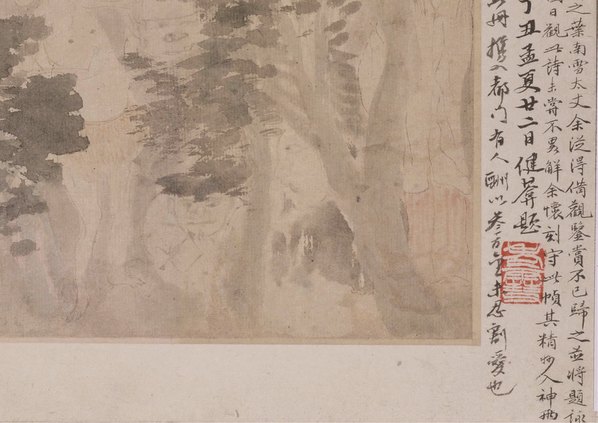 之葉南雪太丈余從得備觀鑒賞不已歸之並將題詠
日觀此詩未嘗不畧解余懷刻守此幀其精妙入神
丁丑孟夏廿二日健葊題
册攜入都門有人酬以叁百金未忍割愛也